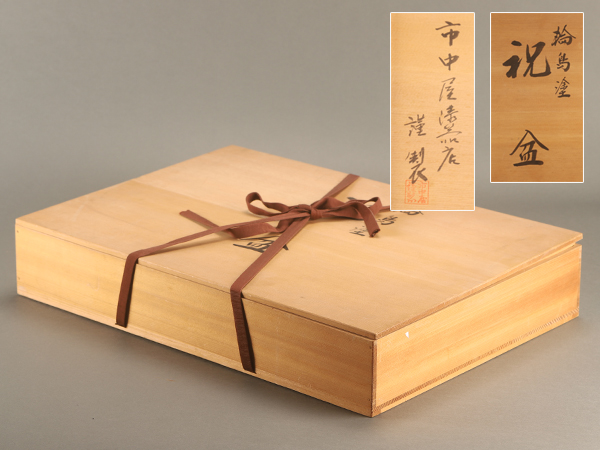 輪島塗
祝盆
市中屋漆器店
謹製